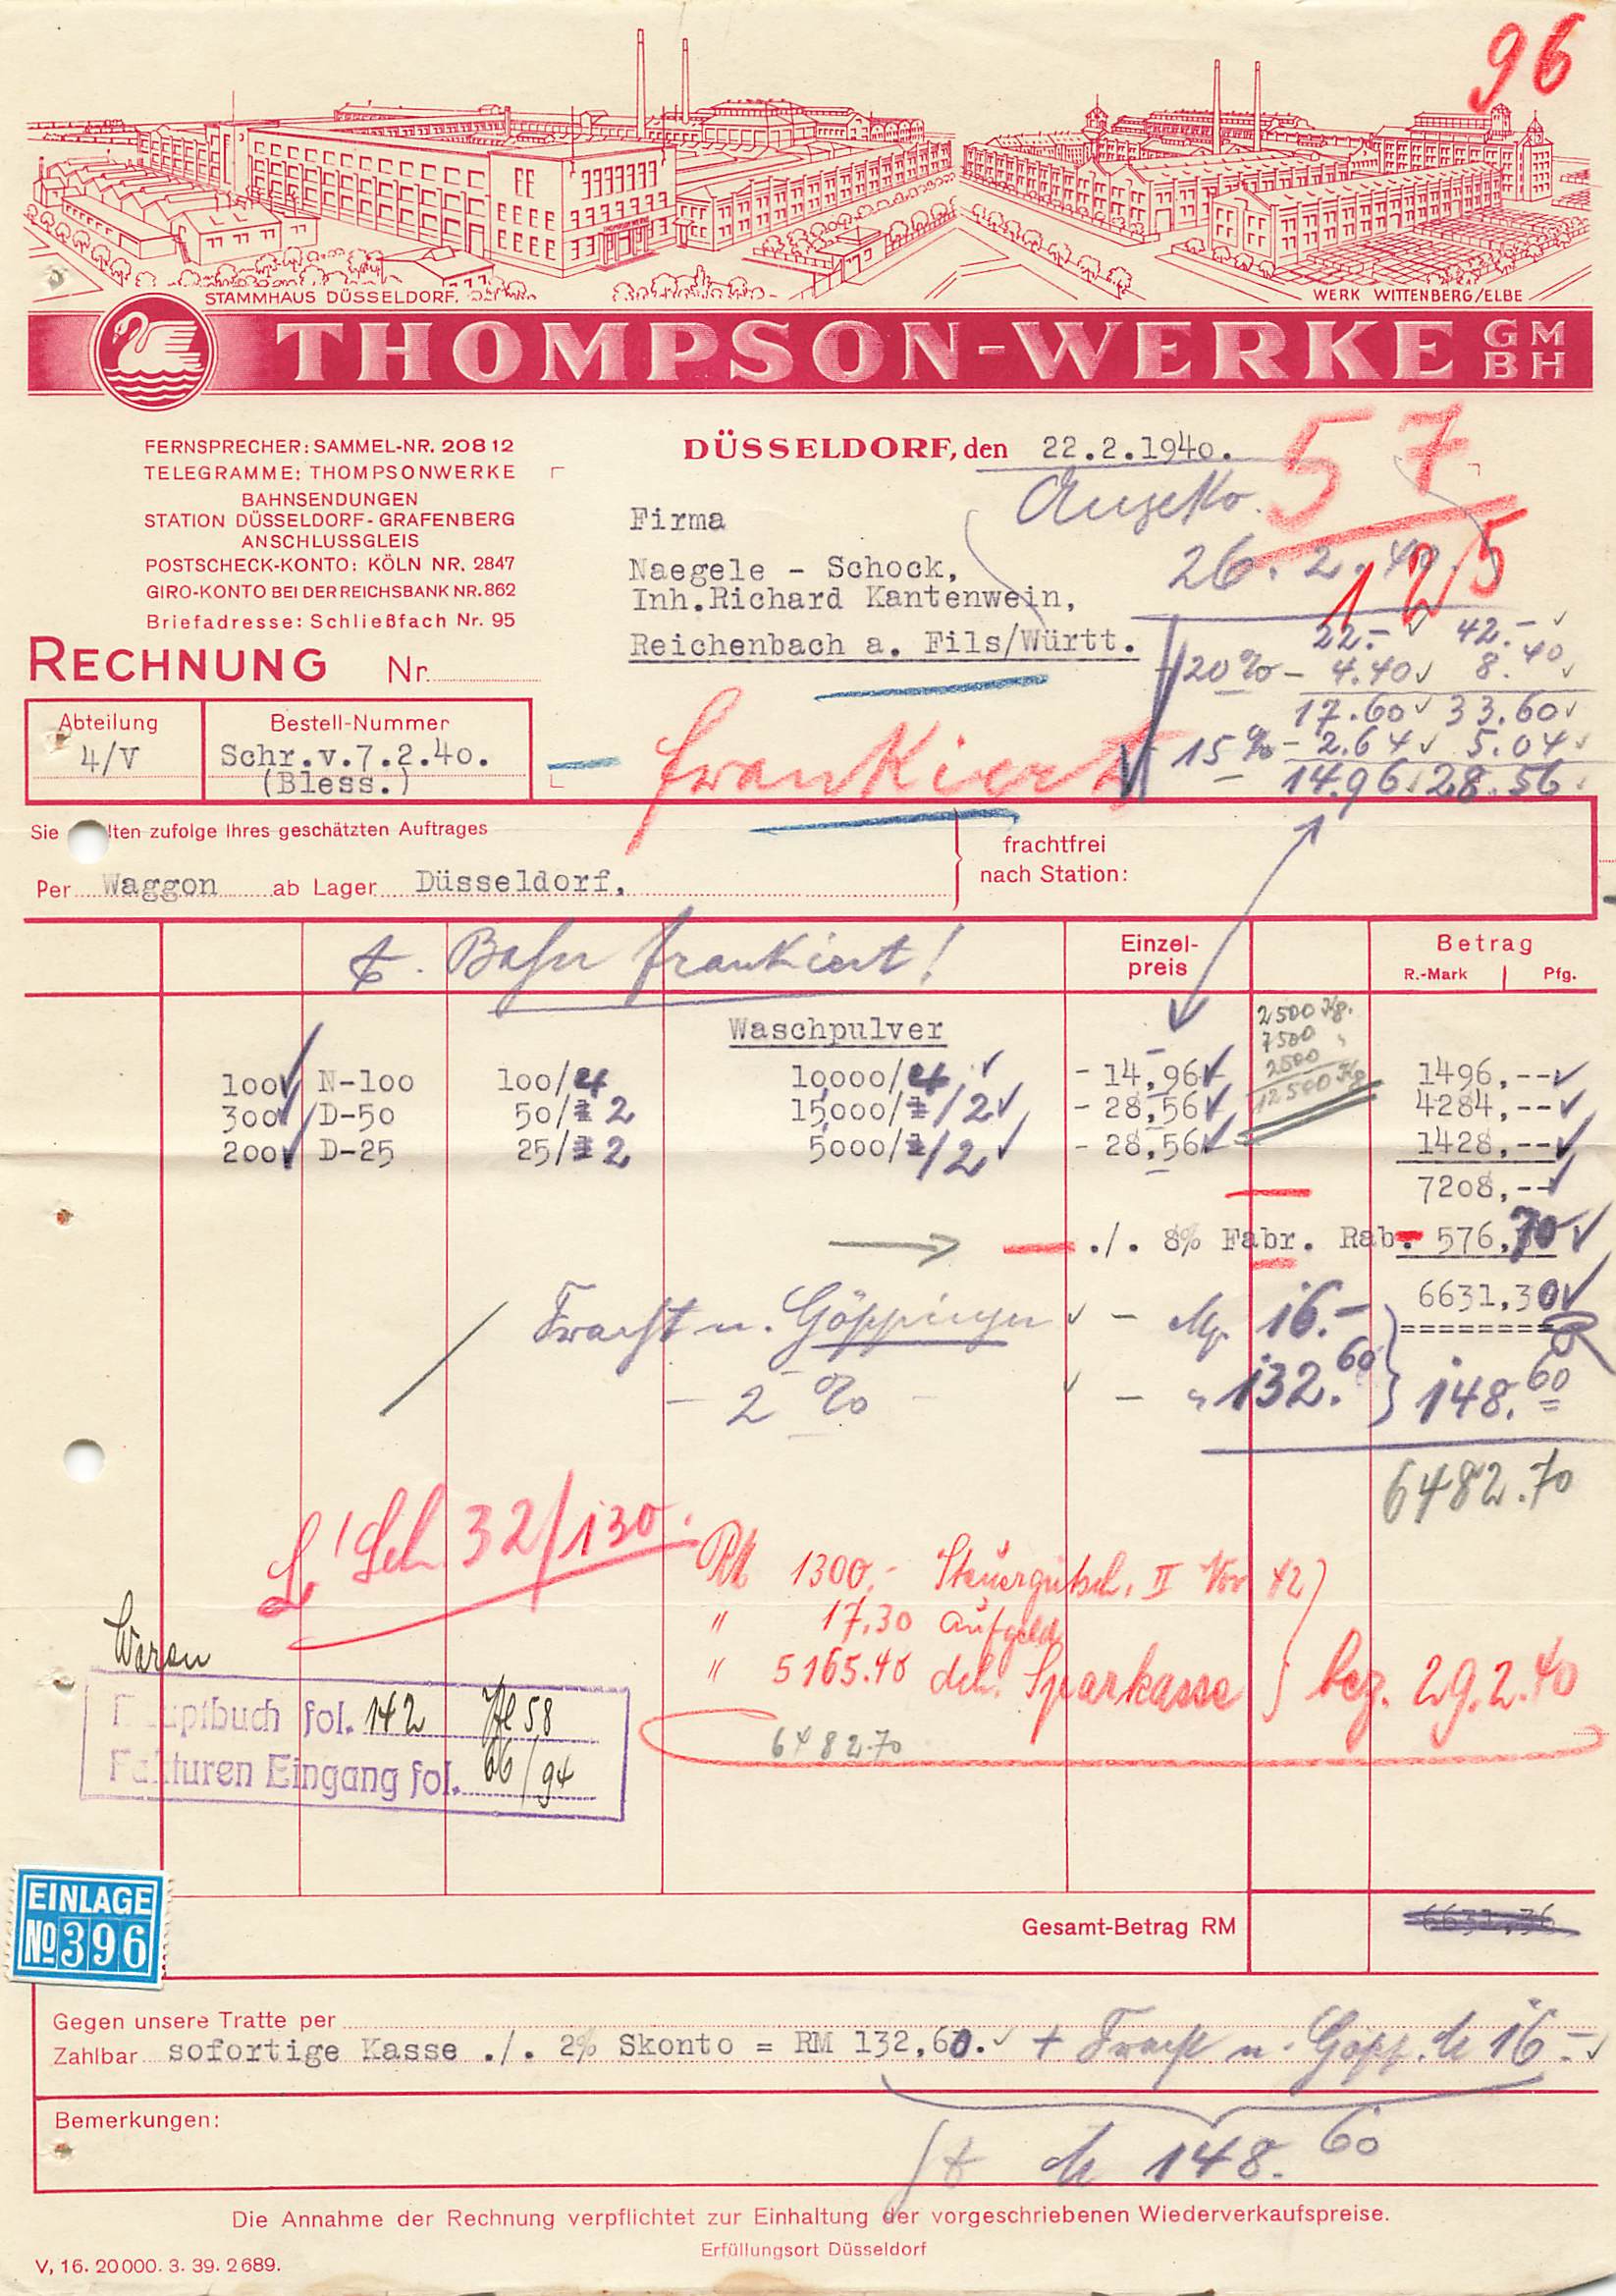 96
STAMMHAUS DÜSSELDORF.
WERK WITTENBERG/ELBE
THOMPSON-WERKE GMBH
FERNSPRECHER: SAMMEL-NR. 20812
TELEGRAMME: THOMPSONWERKE
BAHNSENDUNGEN
STATION DÜSSELDORF-GRAFENBERG
ANSCHLUSSGLEIS
POSTSCHECK-KONTO: KÖLN NR. 2847
GIRO-KONTO BEI DER REICHSBANK NR. 862
Briefadresse: Schließfach Nr. 95
DÜSSELDORF, den 22.2.1940.
57
26.2.40.
125
Firma
Naegele - Schock,
Inh.Richard Kantenwein,
Reichenbach a. Fils/Württ.
22.- 42.-
20% - 4.40 8.40
17.60 33.60
15% - 2.64 5.04
14.96 28.56
RECHNUNG Nr.
Abteilung
4/V
Bestell-Nummer
Schr.v.7.2.40.
(Bless.)
frankiert
Sie lten zufolge Ihres geschätzten Auftrages
Per Waggon ab Lager Düsseldorf,
frachtfrei
nach Station:
Bahn frankiert!
Einzel-
preis
Betrag
R.-Mark Pfg.
Waschpulver
2500 Kg.
7500 "
2500
12500 Kg
100 N-100 100/4 10,000/4 - 14,96 1496,--
300 D-50 50/2 15,000/2 - 28,56 4284,--
200 D-25 25/2 5000/2 - 28,56 1428,--
7208,--
./. 8% Fabr. Rab. 576,70
6631,30
Fracht n. Göppingen - 16.-
- 2 % - - " 132.60 148.60
6482.70
L'Sch 32/130.
RM 1300,- Steuergutsch. II Vor 42
" 17,30 Aufgeld
" 5165.40 dch. Sparkasse bez. 29.2.40
6482.70
Waren
Hauptbuch fol. 142 58
Fakturen Eingang fol. 66/94
EINLAGE
No 396
Gesamt-Betrag RM
Gegen unsere Tratte per
Zahlbar sofortige Kasse ./. 2% Skonto = RM 132,60. + Fracht n. Göpp. 16.-
Bemerkungen:
148.60
Die Annahme der Rechnung verpflichtet zur Einhaltung der vorgeschriebenen Wiederverkaufspreise.
Erfüllungsort Düsseldorf
V, 16. 20000. 3. 39. 2689.